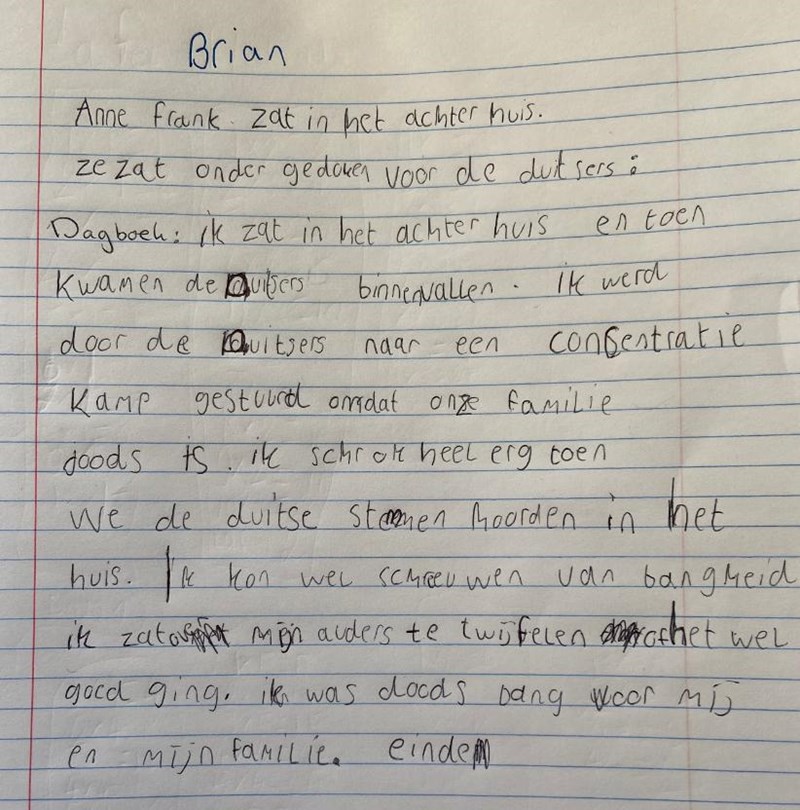 Brian
Anne frank. zat in het achter huis.
ze zat onder gedoken voor de duitsers:
Dagboek: ik zat in het achter huis en toen
kwamen de Duitsers binnenvallen. ik werd
door de Duitsers naar een consentratie
kamp gestuurd omdat onze familie
joods is. ik schrok heel erg toen
we de duitse stemmen hoorden in het
huis. Ik kon wel schreeuwen van bangheid
ik zat mijn auders te twijfelen of het wel
goed ging. ik was doods bang voor mij
en mijn familie. einde